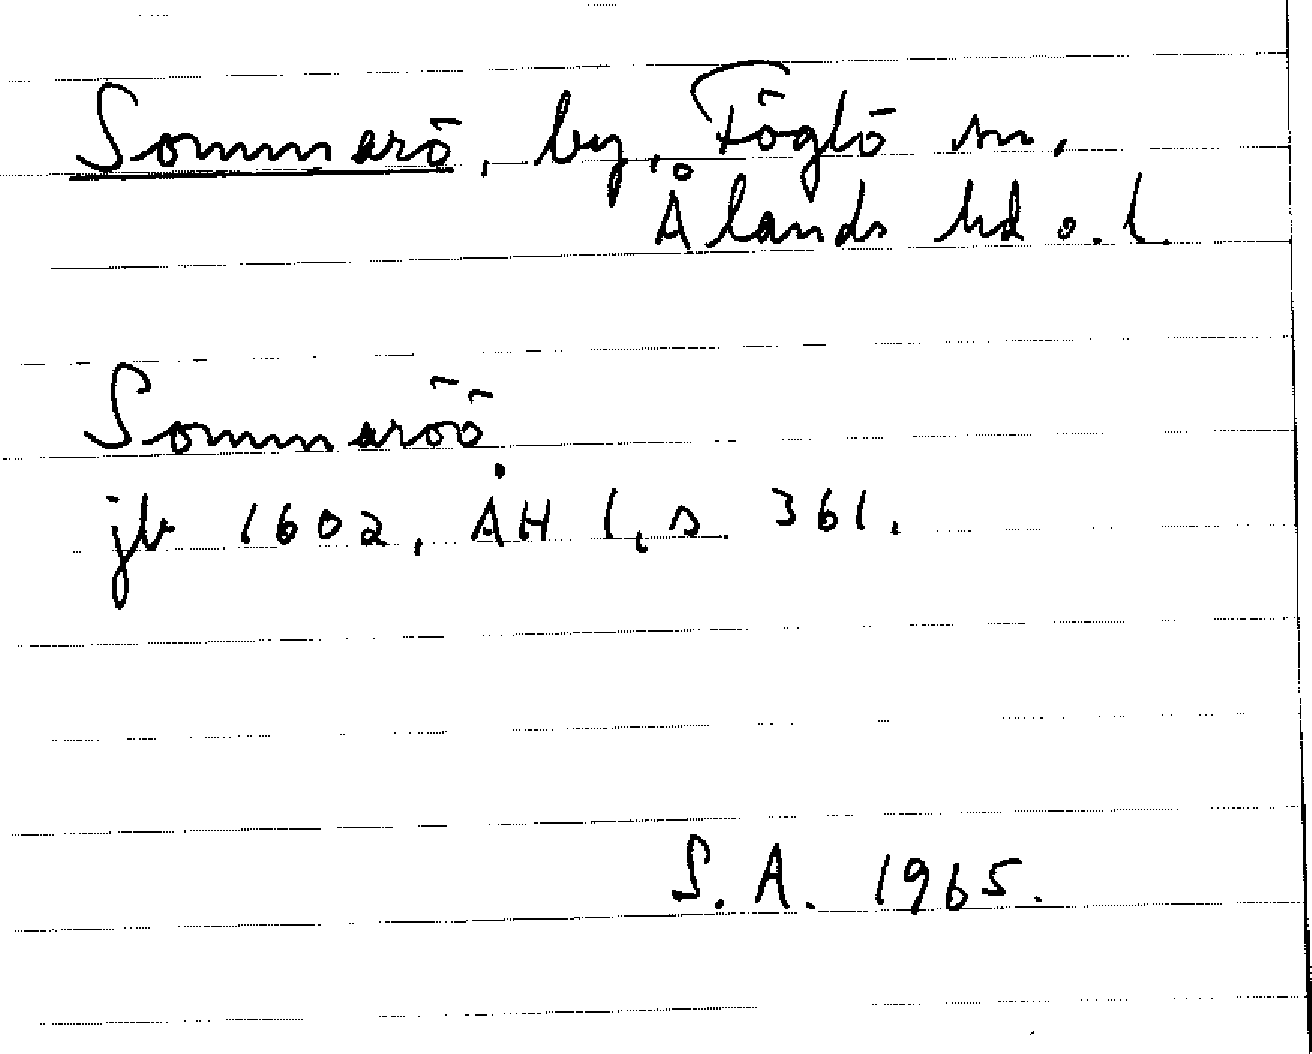 Sommarö, by, Föglö sn,
Ålands hd o. l.
Sommaröö
jb 1602, ÅH 1, s. 361.
S. A. 1965.